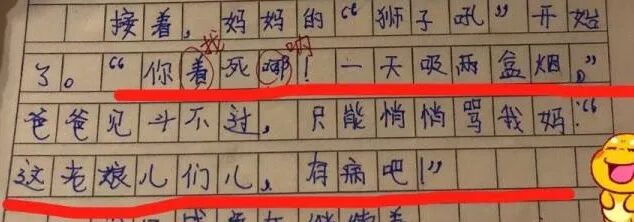 接着，妈妈的“狮子吼”开始
找 呐
了。“你着死哪！一天吸两盒烟。”
爸爸见斗不过，只能悄悄骂我妈：“
这老娘儿们儿，有病吧！”